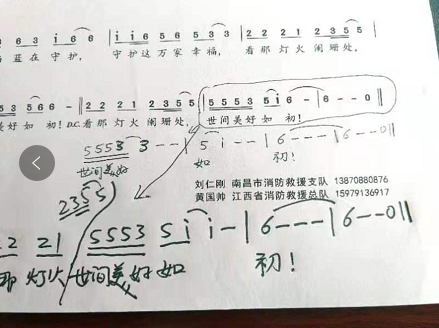 6 3 5 3 i 6 6 | i i 6 5 6 5 3 3 | 2 2 2 1 2 3 5 5
蓝在守护, 守护这万家幸福, 看那灯火阑珊处,
5 3 5 6 6 - ‖ 2 2 2 1 2 3 5 5 | 5 5 5 3 5 i 6 - | 6 - - 0 ‖
美好如初! D.C. 看那灯火阑珊处, 世间美好如初!
5553 3 - - | 5 i - - | 6 - - - | 6 - - 0 ‖
世间美好 如 初!
235 5
刘仁刚 南昌市消防救援支队 13870880876
黄国帅 江西省消防救援总队 15979136917
2 2 21 5553 5i i - | 6 - - - | 6 - - 0 ‖
那 灯火 世间美好 如 初!